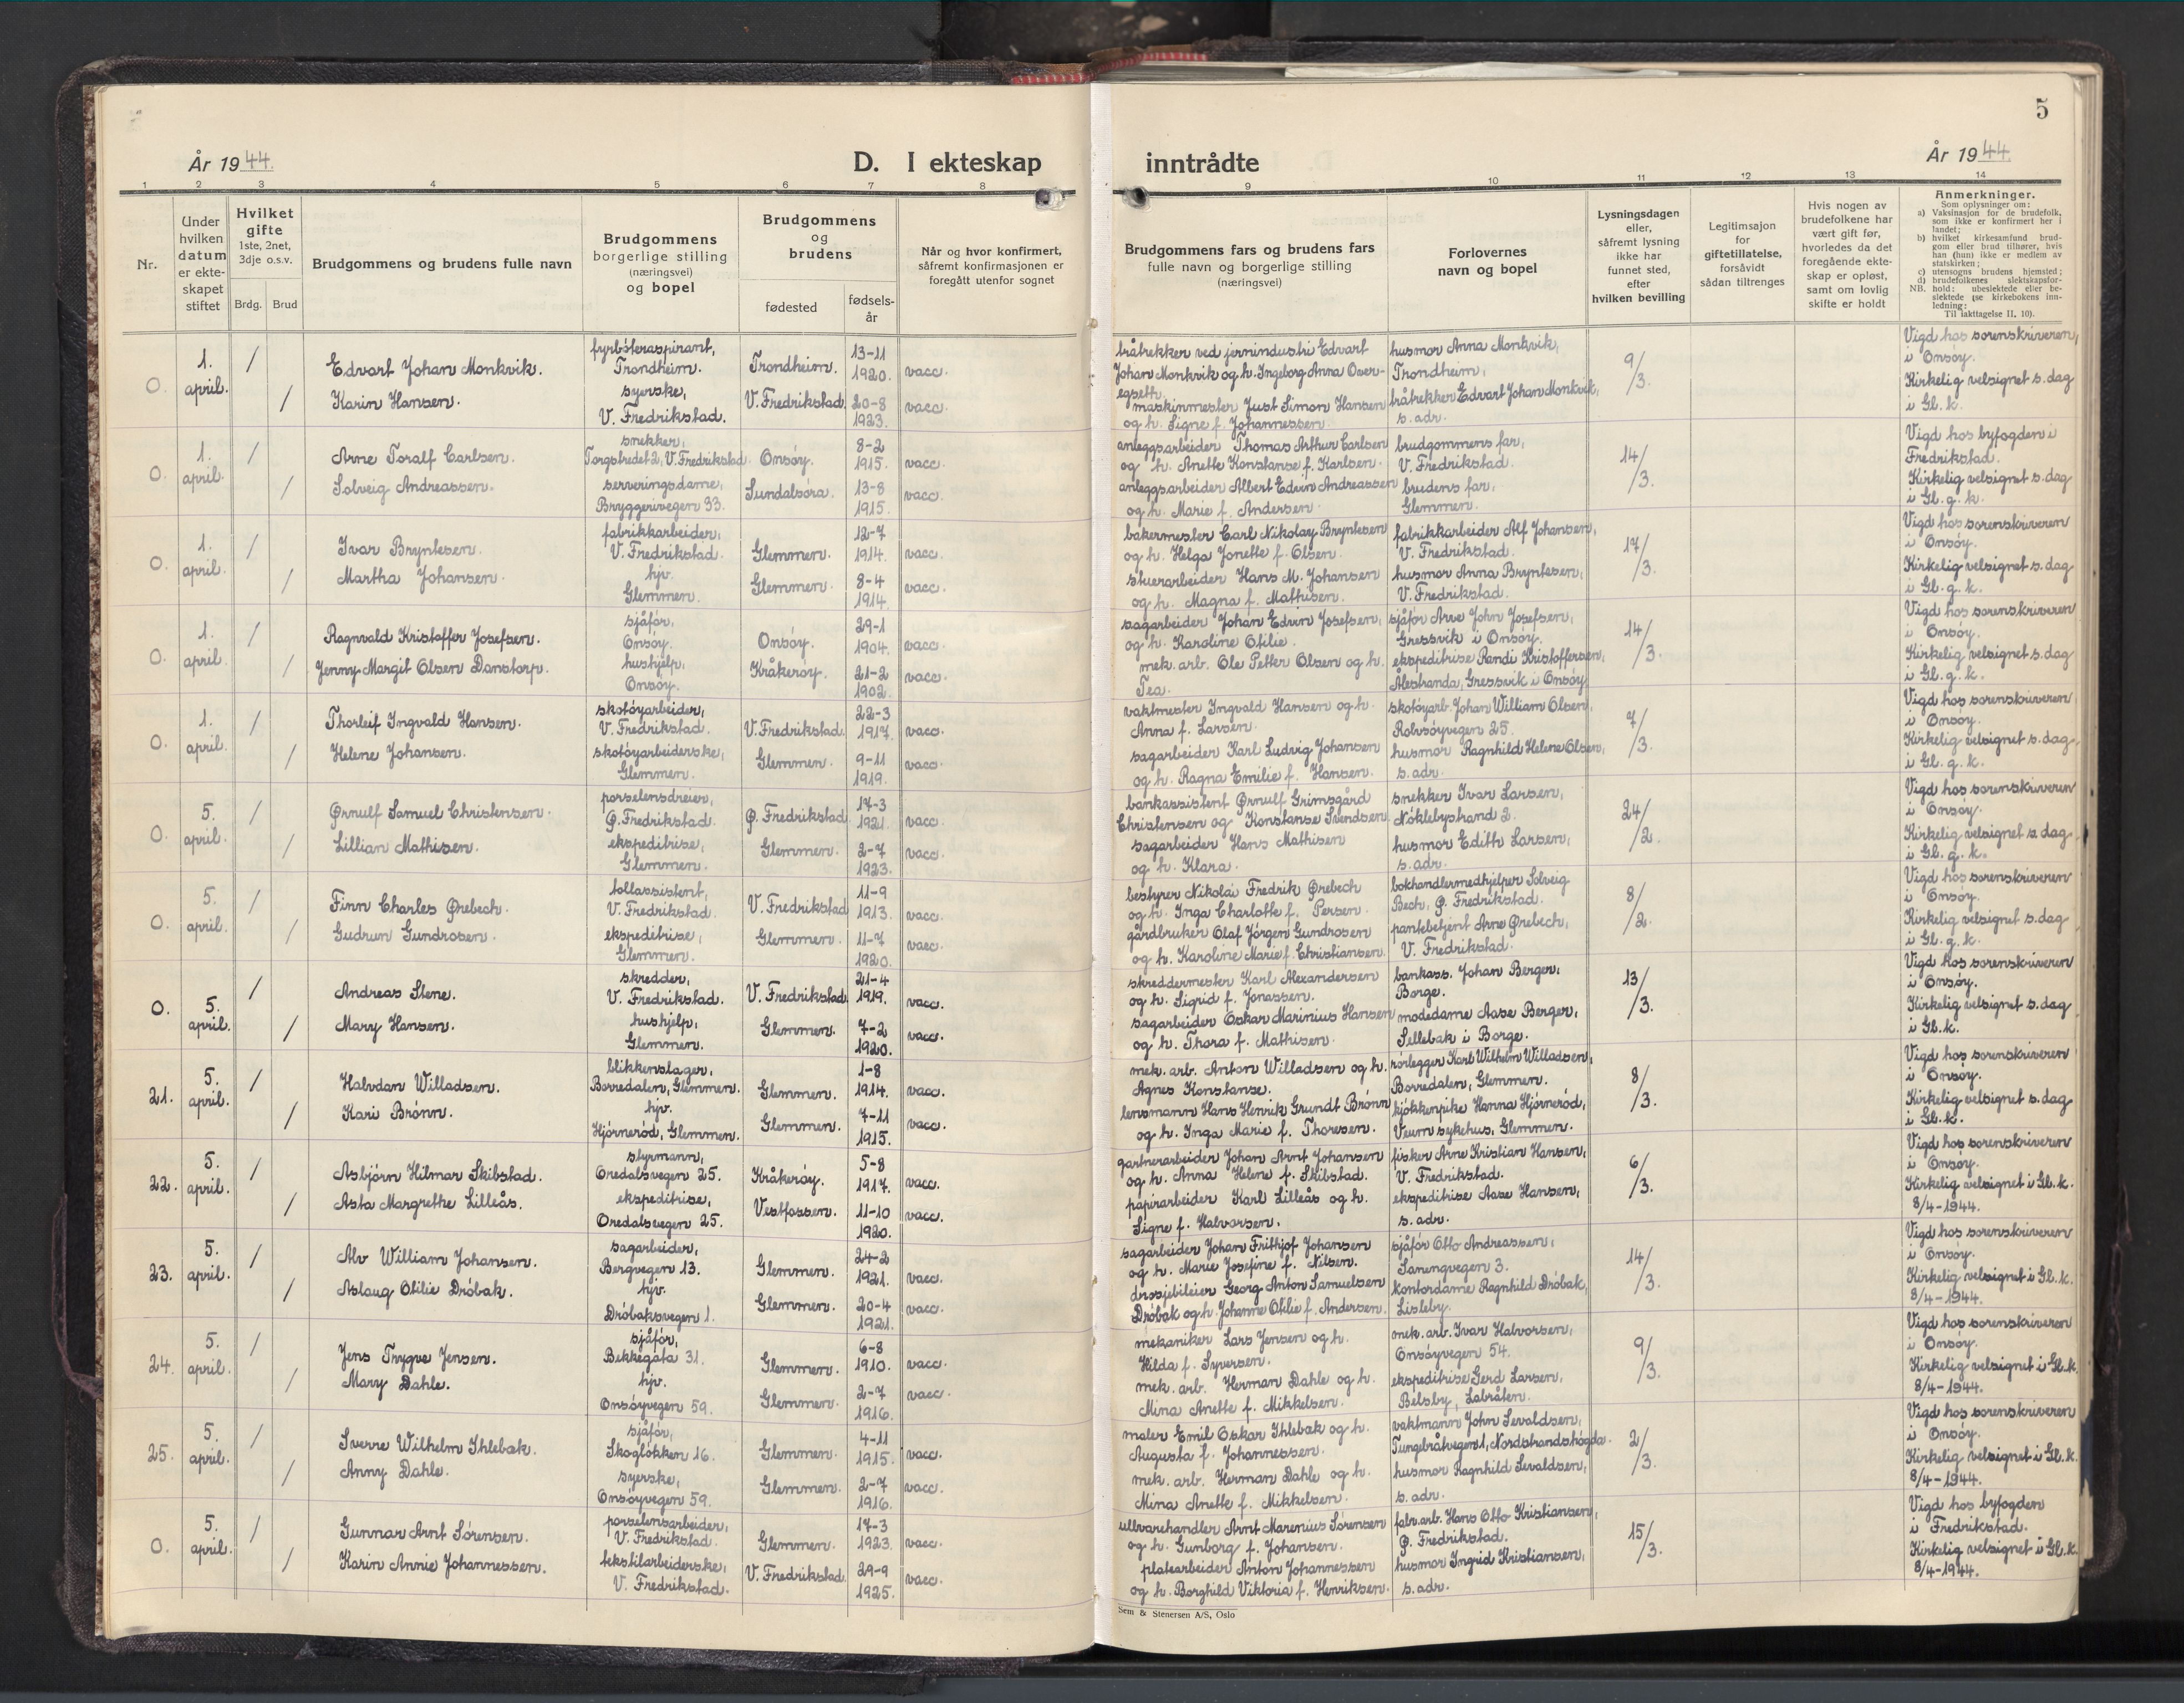 5
År 1944.
D. I ekteskap inntrådte
År 1944.
1 2 3 4 5 6 7 8 9 10 11 12 13 14
Nr.
Under hvilken datum er ekteskapet stiftet
Hvilket gifte
1ste, 2net, 3dje o.s.v.
Brdg. Brud
Brudgommens og brudens fulle navn
Brudgommens borgerlige stilling (næringsvei) og bopel
Brudgommens og brudens
fødested
fødsels-år
Når og hvor konfirmert, såfremt konfirmasjonen er foregått utenfor sognet
Brudgommens fars og brudens fars fulle navn og borgerlige stilling (næringsvei)
Forlovernes navn og bopel
Lysningsdagen eller, såfremt lysning ikke har funnet sted, efter hvilken bevilling
Legitimsajon for giftetillatelse, forsåvidt sådan tiltrenges
Hvis nogen av brudefolkene har vært gift før, hvorledes da det foregående ekteskap er opløst, samt om lovlig skifte er holdt
Anmerkninger.
Som oplysninger om:
a) Vaksinasjon for de brudefolk, som ikke er konfirmert her i landet;
b) hvilket kirkesamfund brudgom eller brud tilhører, hvis han (hun) ikke er medlem av statskirken;
c) utensogns brudens hjemsted;
d) brudefolkenes slektskapsforhold: ubeslektede eller beslektede (se kirkebokens innledning:
NB.
Til iakttagelse II, 10).
O. 1. april. / /
Edvart Johan Monkvik.
Karin Hansen.
fyrbøteraspirant, Trondheim.
syerske, V. Fredrikstad.
Trondheim. 13-11 1920. vacc.
V. Fredrikstad. 20-8 1923. vacc.
tråtrekker ved jernindustri Edvart
Johan Monkvik og h. Ingeborg Anna Over-
egseth.
maskinmester Just Simon Hansen
og h. Signe f. Johannessen.
husmor Anna Monkvik,
Trondheim,
tråtrekker Edvart Johan Monkvik,
s. adr.
9/3.
Vigd hos sorenskriveren,
i Onsøy.
Kirkelig velsignet s. dag
i Gl. k.
O. 1. april. / /
Arne Toralf Carlsen.
Solveig Andreassen.
snekker,
Torgstredet 2, V. Fredrikstad.
serveringsdame,
Bryggerivegen 33.
Onsøy. 8-2 1915. vacc.
Sundalsøra. 13-8 1915. vacc.
anleggsarbeider Thomas Arthur Carlsen
og h. Anette Konstanse f. Karlsen.
anleggsarbeider Albert Edvin Andreassen
og h. Marie f. Andersen.
brudgommens far,
V. Fredrikstad.
brudens far,
Glemmen.
14/3.
Vigd hos byfogden i
Fredrikstad.
Kirkelig velsignet s. dag
i Gl. g. k.
O. 1. april. / /
Ivar Bryntesen.
Martha Johansen.
fabrikkarbeider,
V. Fredrikstad.
hjv.
Glemmen.
Glemmen. 12-7 1914. vacc.
Glemmen. 8-4 1914. vacc.
bakermester Carl Nikolay Bryntesen
og h. Helga Jonette f. Olsen.
stuerarbeider Hans M. Johansen
og h. Magna f. Mathisen.
fabrikkarbeider Alf Johansen,
V. Fredrikstad.
husmor Anna Bryntesen,
V. Fredrikstad.
17/3.
Vigd hos sorenskriveren
i Onsøy.
Kirkelig velsignet s. dag
i Gl. g. k.
O. 1. april. / /
Ragnvald Kristoffer Josefsen.
Jenny Margit Olsen Danstorp.
sjåfør,
Onsøy.
hushjelp,
Onsøy.
Onsøy. 29-1 1904. vacc.
Kråkerøy. 21-2 1902. vacc.
sagarbeider Johan Edvin Josefsen,
og h. Karoline Otilie.
mek. arb. Ole Petter Olsen og h.
Tea.
sjåfør Arve John Josefsen,
Gressvik i Onsøy.
ekspeditrise Randi Kristoffersen,
Ålestranda, Gressvik i Onsøy.
14/3.
Vigd hos sorenskriveren
i Onsøy.
Kirkelig velsignet s. dag
i Gl. g. k.
O. 1. april. / /
Thorleif Ingvald Hansen.
Helene Johansen.
skotøyarbeider,
V. Fredrikstad.
skotøyarbeiderske,
Glemmen.
V. Fredrikstad. 22-3 1917. vacc.
Glemmen. 9-11 1919. vacc.
vaktmester Ingvald Hansen og h.
Anna f. Larsen.
sagarbeider Karl Ludvig Johansen
og h. Ragna Emilie f. Hansen.
skotøyarb. Johan William Olsen,
Rolvsøyvegen 25.
husmor Ragnhild Helene Olsen,
s. adr.
7/3.
Vigd hos sorenskriveren
i Onsøy.
Kirkelig velsignet s. dag.
i Gl. g. k.
O. 5. april. / /
Ørnulf Samuel Christensen.
Lillian Mathisen.
porselensdreier,
Ø. Fredrikstad.
ekspeditrise,
Glemmen.
Ø. Fredrikstad. 17-3 1921. vacc.
Glemmen. 2-7 1923. vacc.
bankassistent Ørnulf Grimsgård
Christensen og Konstanse Svendsen.
sagarbeider Hans Mathisen
og h. Klara.
snekker Ivar Larsen,
Nøklebystrand 2.
husmor Edith Larsen,
s. adr.
24/2.
Vigd hos sorenskriveren
i Onsøy.
Kirkelig velsignet s. dag
i Gl. g. k.
O. 5. april. / /
Finn Charles Ørebech.
Gudrun Gundrosen.
tollassistent,
V. Fredrikstad.
ekspeditrise,
Glemmen.
V. Fredrikstad 11-9 1913. vacc.
Glemmen. 11-7 1920. vacc.
bestyrer Nikolai Fredrik Ørebech
og h. Inga Charlotte f. Persen.
gårdbruker Olaf Jørgen Gundrosen
og h. Karoline Marie f. Christiansen.
bokhandlermedhjelper Solveig
Bech, Ø. Fredrikstad.
pantebetjent Arne Ørebech,
V. Fredrikstad.
8/2.
Vigd hos sorenskriveren
i Onsøy.
Kirkelig velsignet s. dag
i Gl. g. k.
O. 5. april. / /
Andreas Stene.
Mary Hansen.
skredder,
V. Fredrikstad.
hushjelp,
Glemmen.
V. Fredrikstad. 21-4 1919. vacc.
Glemmen. 7-2 1920. vacc.
skreddermester Karl Alexandersen
og h. Sigrid f. Jonassen.
sagarbeider Oskar Marinius Hansen
og h. Thora f. Mathisen.
bankass. Johan Berger,
Borge.
modedame Aase Berger,
Sellebak i Borge.
13/3.
Vigd hos sorenskriveren
i Onsøy.
Kirkelig velsignet s. dag
i Gl. k.
21. 5. april. / /
Halvdan Willadsen.
Kari Brønn.
blikkenslager,
Borredalen, Glemmen.
hjv.
Hjørnerød, Glemmen.
Glemmen. 1-8 1914. vacc.
Glemmen. 7-11 1915. vacc.
mek. arb. Anton Willadsen og h.
Agnes Konstanse.
lensmann Hans Henrik Grundt Brønn
og h. Inga Marie f. Thoresen.
rørlegger Karl Wilhelm Willadsen,
Borredalen, Glemmen.
kjøkkenpike Hanna Hjørnerød,
Veum sykehus, Glemmen.
8/3.
Vigd hos sorenskriveren
i Onsøy.
Kirkelig velsignet s. dag
i Gl. k.
22. 5. april. / /
Asbjørn Hilmar Skibstad.
Asta Margrethe Lilleås.
styrmann,
Oredalsvegen 25.
ekspeditrise,
Oredalsvegen 25.
Kråkerøy. 5-8 1917. vacc.
Vestfossen. 11-10 1920. vacc.
gartnerarbeider Johan Arnt Johansen
og h. Anna Helene f. Skibstad.
papirarbeider Karl Lilleås og h.
Signe f. Halvorsen.
fisker Arne Kristian Hansen,
V. Fredrikstad.
ekspeditrise Aase Hansen,
s. adr.
6/3.
Vigd hos sorenskriveren
i Onsøy.
Kirkelig velsignet i Gl. k.
8/4-1944.
23. 5. april. / /
Alv William Johansen.
Aslaug Otilie Drøbak.
sagarbeider,
Bergvegen 13.
hjv.
Drøbaksvegen 1.
Glemmen. 24-2 1921. vacc.
Glemmen. 20-4 1921. vacc.
sagarbeider Johan Frithjof Johansen
og h. Marie Josefine f. Nilsen.
drosjebileier Georg Anton Samuelsen
Drøbak og h. Johanne Otilie f. Andersen.
sjåfør Otto Andreassen,
Sanengvegen 3.
kontordame Ragnhild Drøbak,
Lisleby.
14/3.
Vigd hos sorenskriveren
i Onsøy.
Kirkelig velsignet i Gl. k.
8/4-1944.
24. 5. april. / /
Jens Trygve Jensen.
Mary Dahle.
sjåfør,
Bekkegata 31.
hjv.
Onsøyvegen 59.
Glemmen. 6-8 1910. vacc.
Glemmen. 2-7 1916. vacc.
mekaniker Lars Jensen og h.
Hilda f. Syversen.
mek. arb. Herman Dahle og h.
Mina Anette f. Mikkelsen.
mek. arb. Ivar Halvorsen,
Onsøyvegen 54.
ekspeditrise Gerd Larsen,
Labråten.
9/3.
Vigd hos sorenskriveren
i Onsøy.
Kirkelig velsignet i Gl. k.
8/4-1944.
25. 5. april. / /
Sverre Wilhelm Ihlebak.
Anny Dahle.
sjåfør,
Skogløkken 16.
syerske,
Onsøyvegen 59.
Glemmen. 4-11 1915. vacc.
Glemmen. 2-7 1916. vacc.
maler Emil Oskar Ihlebak og h.
Augusta f. Johannessen.
mek. arb. Herman Dahle og h.
Mina Anette f. Mikkelsen.
vaktmann John Sevaldsen,
Nordstrandshøgda.
husmor Ragnhild Sevaldsen,
s. adr.
2/3.
Vigd hos sorenskriveren
i Onsøy.
Kirkelig velsignet i Gl. k.
8/4-1944.
O. 5. april. / /
Gunnar Arnt Sørensen.
Karin Annie Johannessen.
porselensarbeider,
V. Fredrikstad.
tekstilarbeiderske,
V. Fredrikstad.
Glemmen. 17-3 1923. vacc.
V. Fredrikstad. 29-9 1925. vacc.
ullvarehandler Arnt Marenius Sørensen
og h. Gunborg f. Johansen.
platearbeider Anton Johannessen
og h. Borghild Viktoria f. Henriksen.
fabr.arb. Hans Otto Kristiansen,
Ø. Fredrikstad.
husmor Ingrid Kristiansen,
s. adr.
15/3.
Vigd hos byfogden
i Fredrikstad.
Kirkelig velsignet i Gl. k.
8/4-1944.
Sem & Stenersen A/S, Oslo